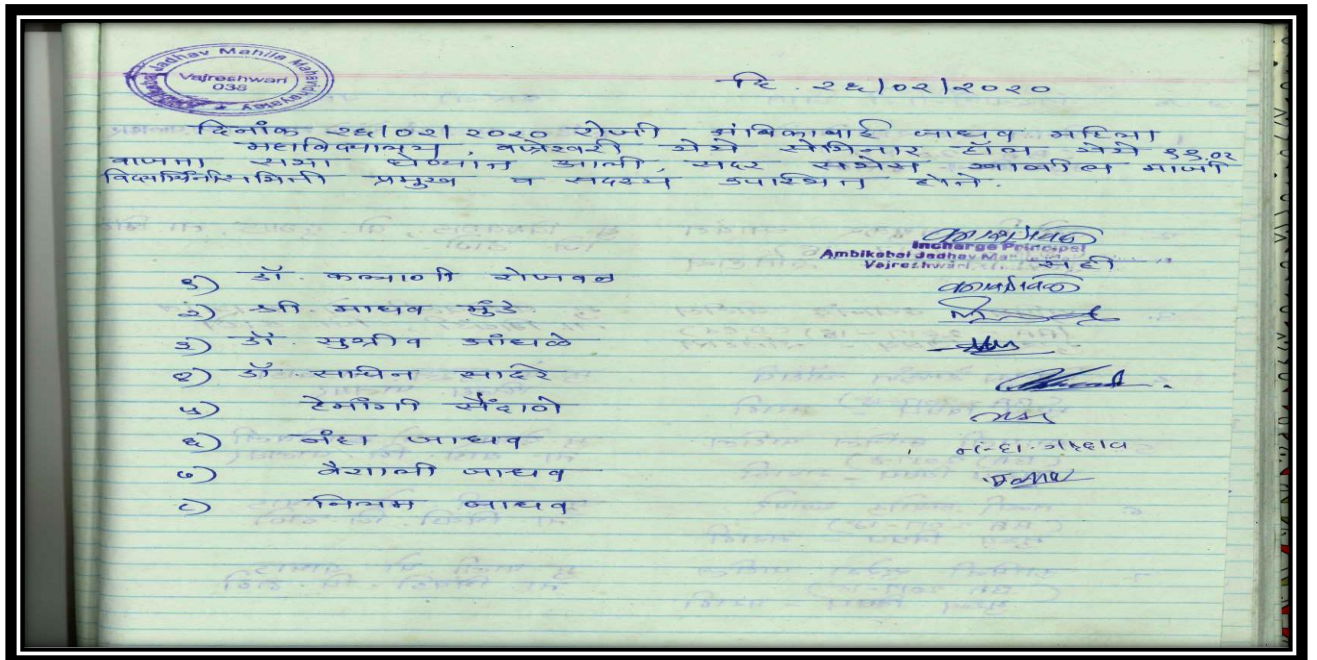 Jadhav Mahila Mahavidyalaya
Vajreshwari
038
दि. २६/०२/२०२०
दिनांक २६/०२/२०२० रोजी अंबिकाबाई जाधव महिला
महाविद्यालय, वज्रेश्वरी येथे सेमिनार हॉल येथे ११.०२
वाजता सभा घेण्यात आली, सदर सभेस खालील माजी
विद्यार्थिनी समिती प्रमुख व सदस्य उपस्थित होते.
Incharge Principal
Ambikabai Jadhav
Vajreshwari
सही
१) डॉ. कल्याणी
२) श्री माधव मुंडे
३) डॉ. सुग्रीव आंधळे
४) डॉ. साधिन सादरे
५) हेमांगी सैंदाणे
६) नंदा जाधव नन्दा जाधव
७) वैशाली जाधव
८) निलम जाधव